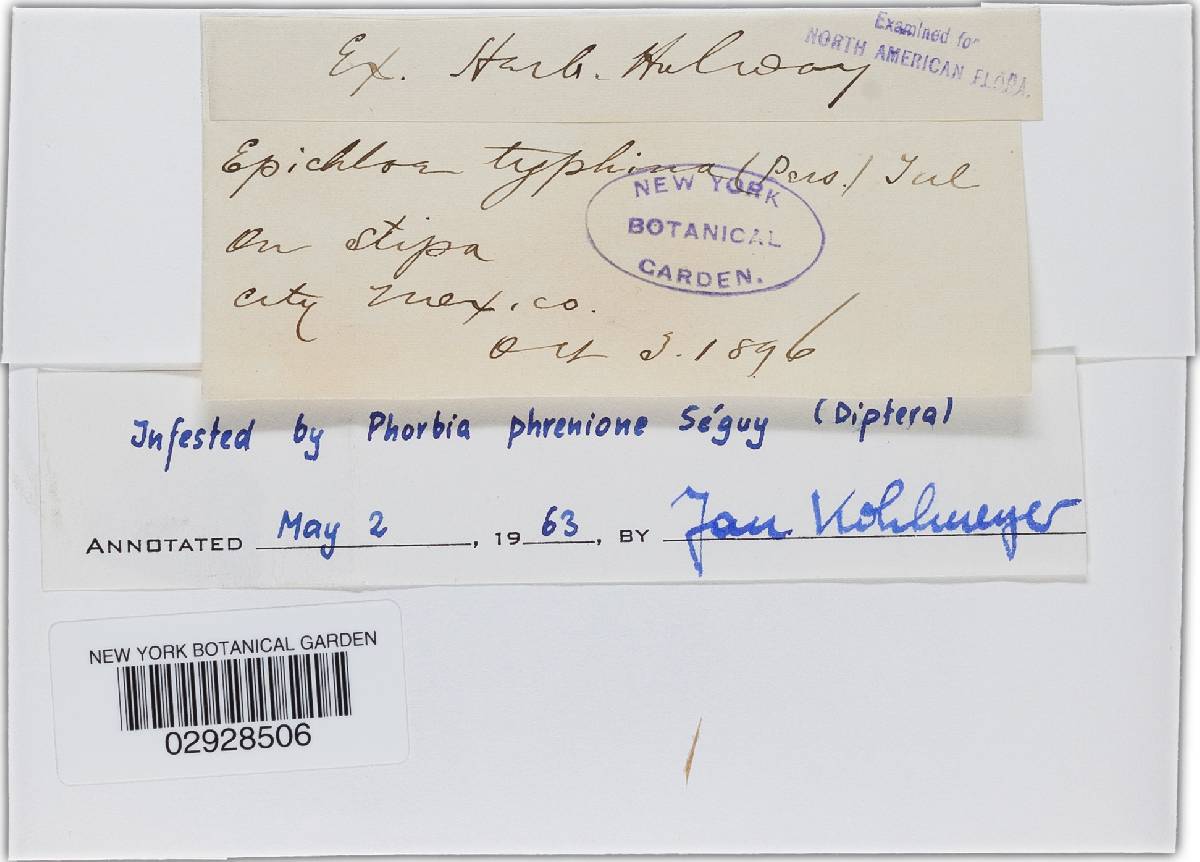 Ex. Herb. Holway
Examined for
NORTH AMERICAN FLORA.
Epichloa typhina (Pers.) Tul
on Stipa
NEW YORK
BOTANICAL
GARDEN.
City Mexico.
Oct 3. 1896
Infested by Phorbia phrenione Séguy (Diptera)
ANNOTATED May 2, 1963, BY Jan Kohlmeyer
NEW YORK BOTANICAL GARDEN
02928506